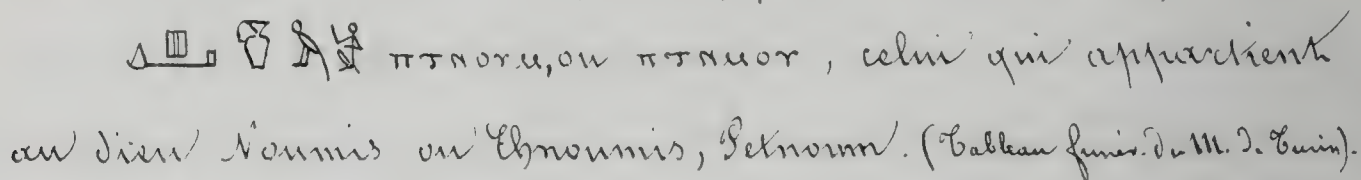 πτⲛⲟⲩⲙ, ou πτⲛⲙⲟⲩ, celui qui appartient
au dieu Noumis ou Chnoumis, Petnoum. (Tableau funér. du M. de Turin).